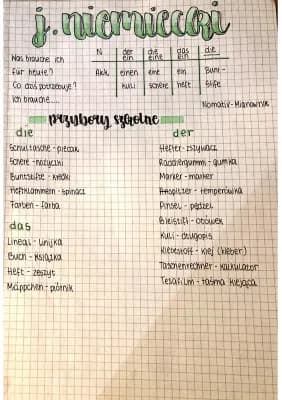 j. niemiecki
N der die das die
ein eine ein
Was brauche ich
für heute? Akk. einen eine ein Bunt-
Co dziś potrzebuję? Kuli schere heft stifte
Ich brauche....
Nomativ - Mianownik
przybory szkolne
die
Schultasche - plecak
Schere - nożyczki
Buntstifte - kredki
Heftklammern - spinacz
Farben - farba
das
Lineal - linijka
Buch - książka
Heft - zeszyt
Mäppchen - piórnik
der
Hefter - zszywacz
Radiergummi - gumka
Marker - marker
Anspitzer - temperówka
Pinsel - pędzel
Bleistift - ołówek
Kuli - długopis
Klebestoff - klej (kleber)
Taschenrechner - kalkulator
Tesafilm - taśma klejąca